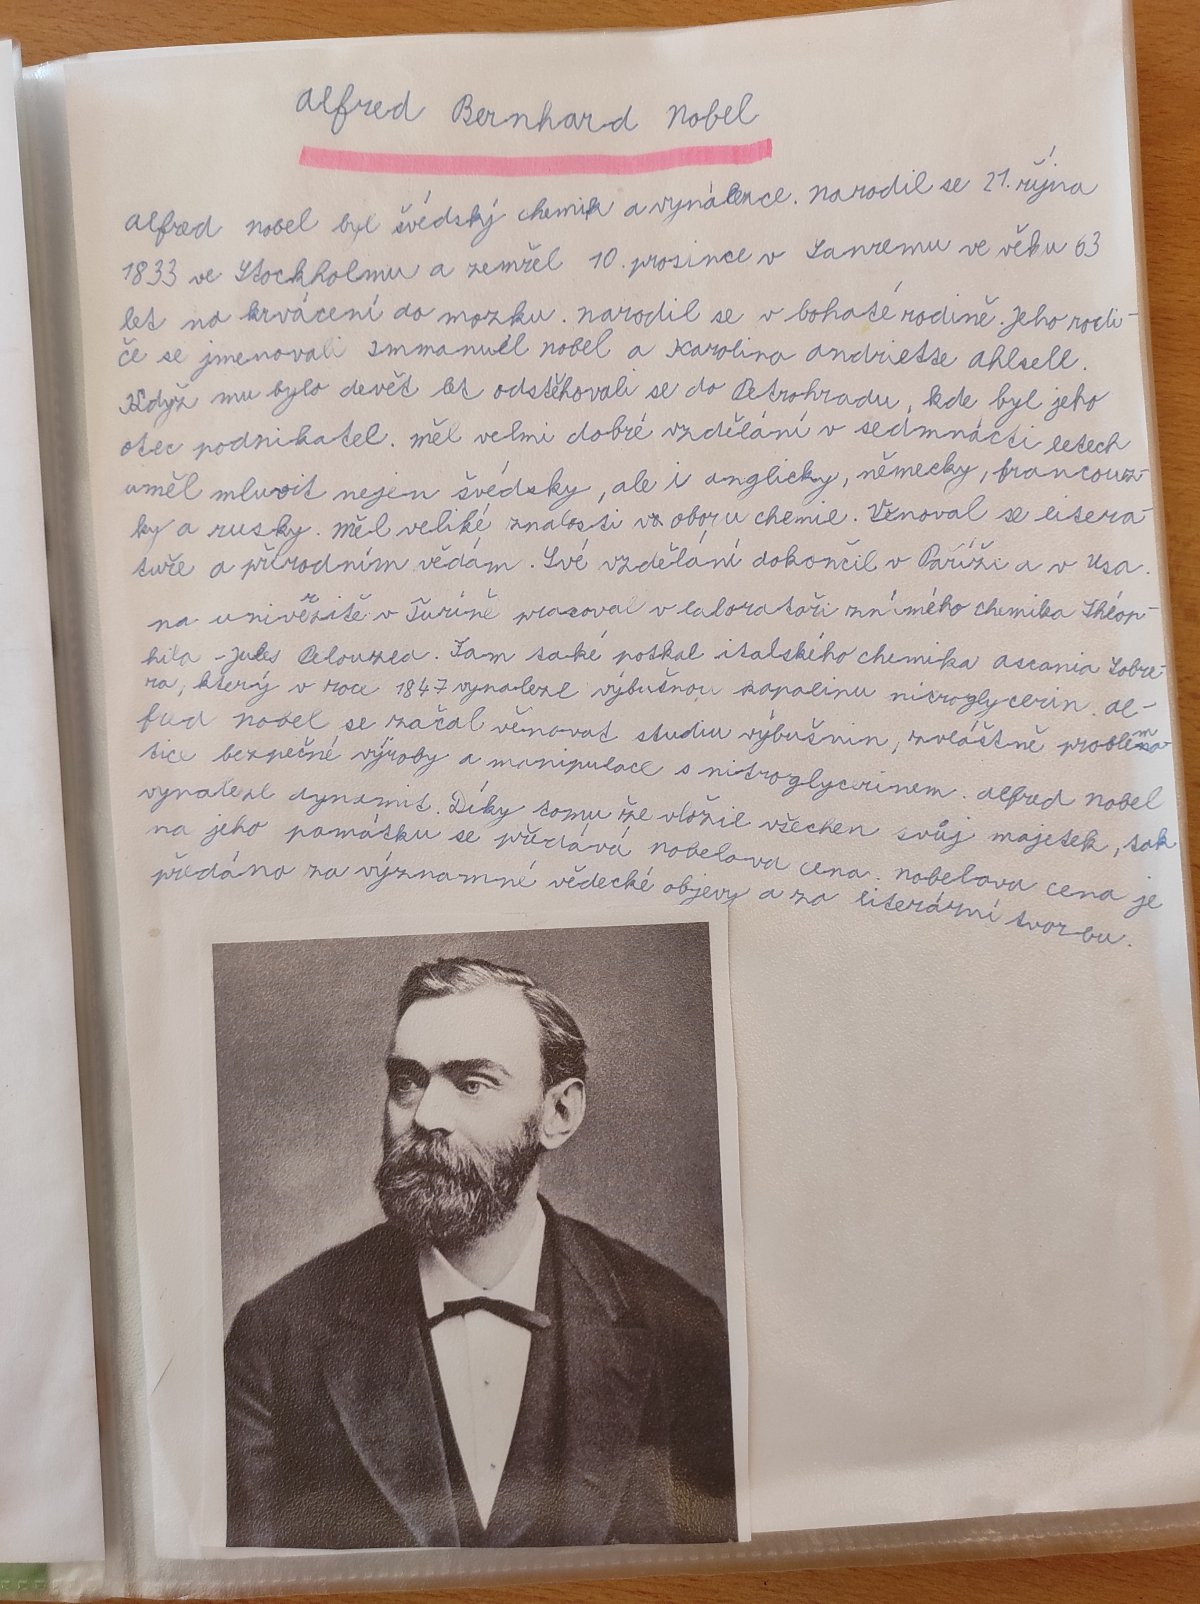 Alfred Bernhard Nobel
Alfred Nobel byl švédský chemik a vynálezce. Narodil se 21. října
1833 ve Stockholmu a zemřel 10. prosince v Sanremu ve věku 63
let na krvácení do mozku. Narodil se v bohaté rodině. Jeho rodi-
če se jmenovali Immanuel Nobel a Karolina Andrietse Ahlsell.
Když mu bylo devět let odstěhovali se do Petrohradu, kde byl jeho
otec podnikatel. Měl velmi dobré vzdělání v sedmnácti letech
uměl mluvit nejen švédsky, ale i anglicky, německy, francouz-
ky a rusky. Měl veliké znalosti v oboru chemie. Věnoval se litera-
tuře a přírodním vědám. Své vzdělání dokončil v Paříži a v Usa.
Na univerzitě v Turíně pracoval v laboratoři známého chemika Théop-
hila - Jules Pelouzea. Tam také potkal italského chemika Ascania Sobre-
ra, který v roce 1847 vynalezl výbušnou kapalinu nitroglycerin. Al-
fred Nobel se začal věnovat studiu výbušnin, zvláštně problema-
tice bezpečné výroby a manipulace s nitroglycerinem. Alfred Nobel
vynalezl dynamit. Díky tomu že vložil všechen svůj majetek, tak
na jeho památku se předává nobelova cena. Nobelova cena je
předáno za významné vědecké objevy a za literární tvorbu.